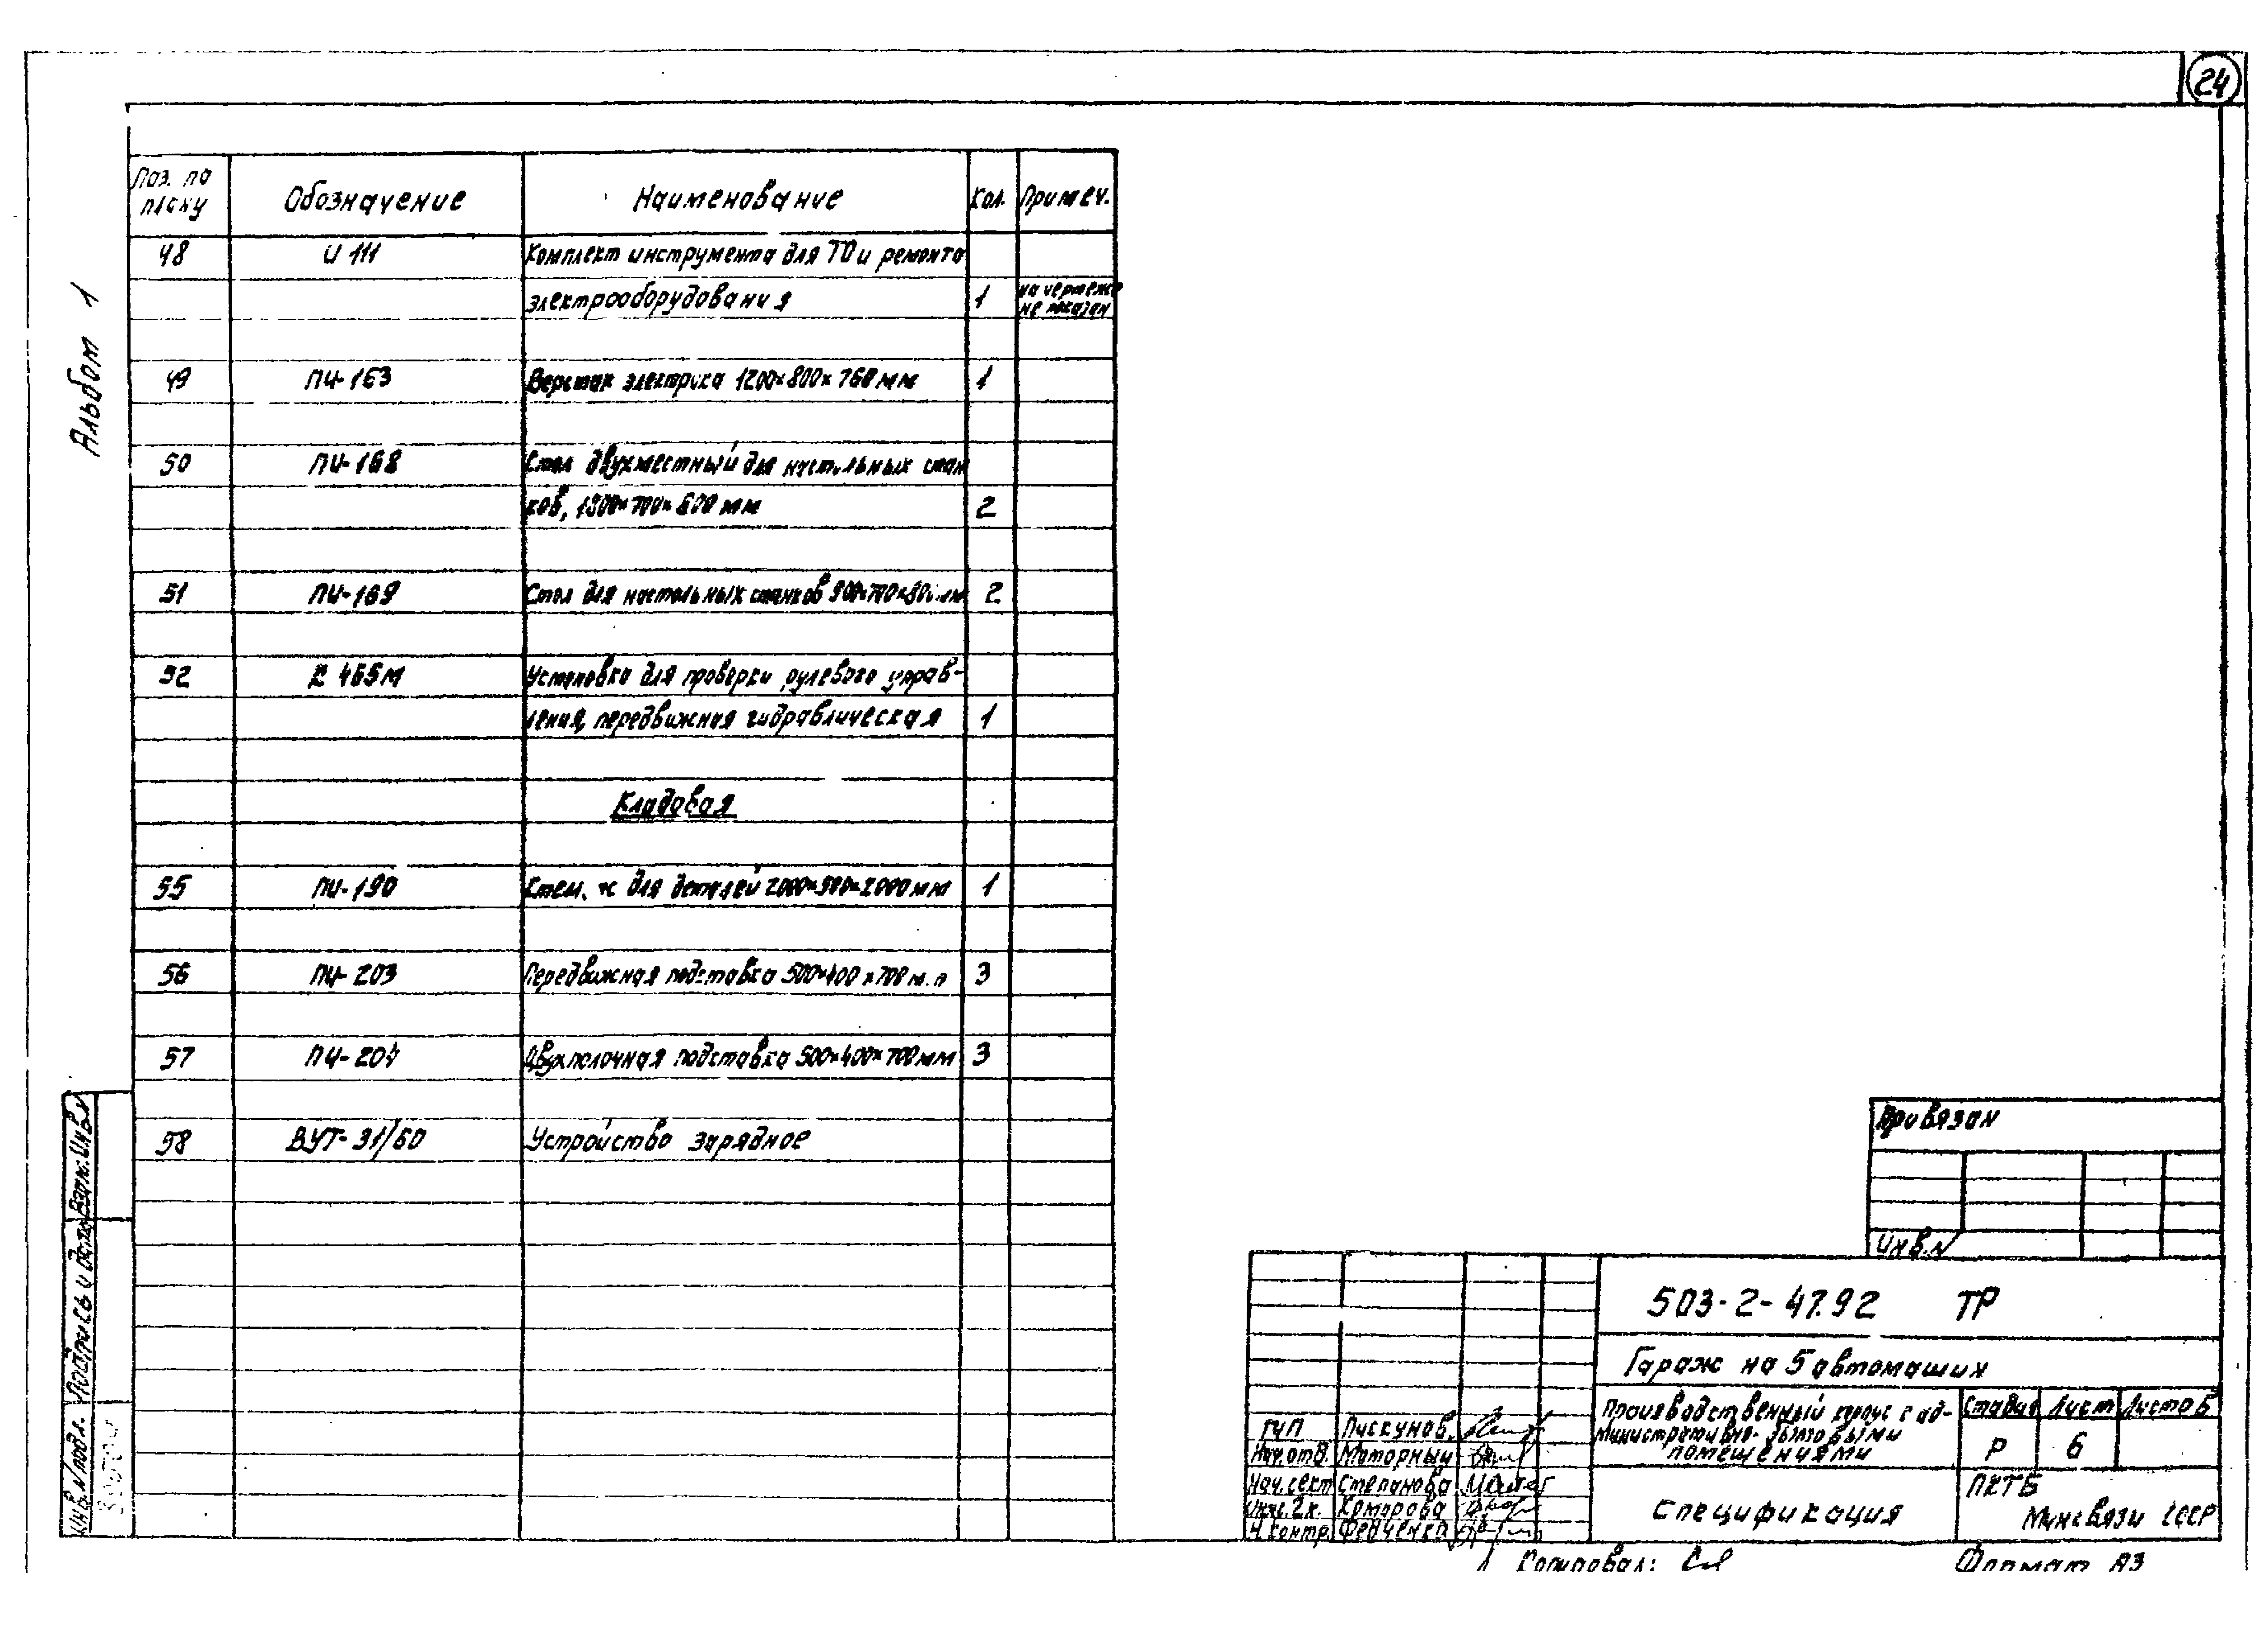 24
Альбом 1
Поз. по плану Обозначение Наименование Кол. Примеч.
48 И 111 Комплект инструмента для ТО и ремонта
электрооборудования 1 на чертеже не показан
49 ПИ-163 Верстак электрика 1200×800×760 мм 1
50 ПИ-168 Стол двухместный для настольных стан
ков, 1800×700×600 мм 2
51 ПИ-169 Стол для настольных станков 2
52 К 465М Установка для проверки рулевого управ-
ления, передвижная гидравлическая 1
Кладовая
55 ПИ-190 для деталей 1
56 ПИ-203 Передвижная подставка 500×400×700 3
57 ПИ-204 Двухполочная подставка 500×400×700 мм 3
58 ВУТ-31/60 Устройство зарядное
Привязан
Инв.N
503-2-47.92 ТР
Гараж на 5 автомашин
Производственный корпус с ад-
министративно-бытовыми
помещениями
Стадия Лист Листов
Р 6
Спецификация
ПКТБ
Минсвязи СССР
ГИП Пискунов
Нач.отд. Моторный
Нач.сект Степанова
Инж.2к. Комарова
Н.контр. Федченко
Копировал:
Формат А3
Взам.Инв.N
Подпись и дата
Инв.N подл.